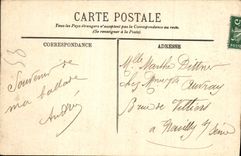 CARTE POSTALE
Tous les Pays étrangers n'acceptent pas la Correspondance au recto.
(Se renseigner à la Poste)
CORRESPONDANCE
ADRESSE
58
Souvenir de
ma ballade
André
Mlle Marthe
chez
Rue de Villiers
à Neuilly s/
Seine